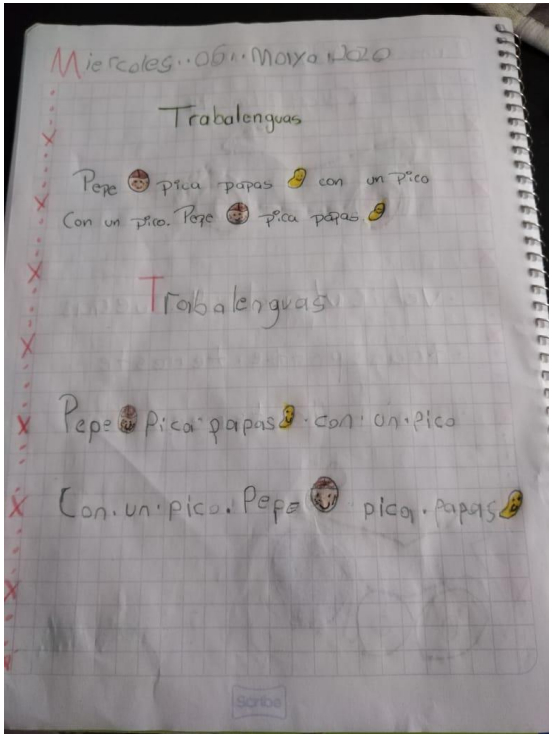 Miercoles..06..Moiyo.2020
Trabalenguas
Pepe pica papas con un pico
Con un pico. Pepe pica papas.
Trabalenguas
Pepe pica.papas.con.un.pico
Con.un.pico.Pepe pica.papas
Scribe